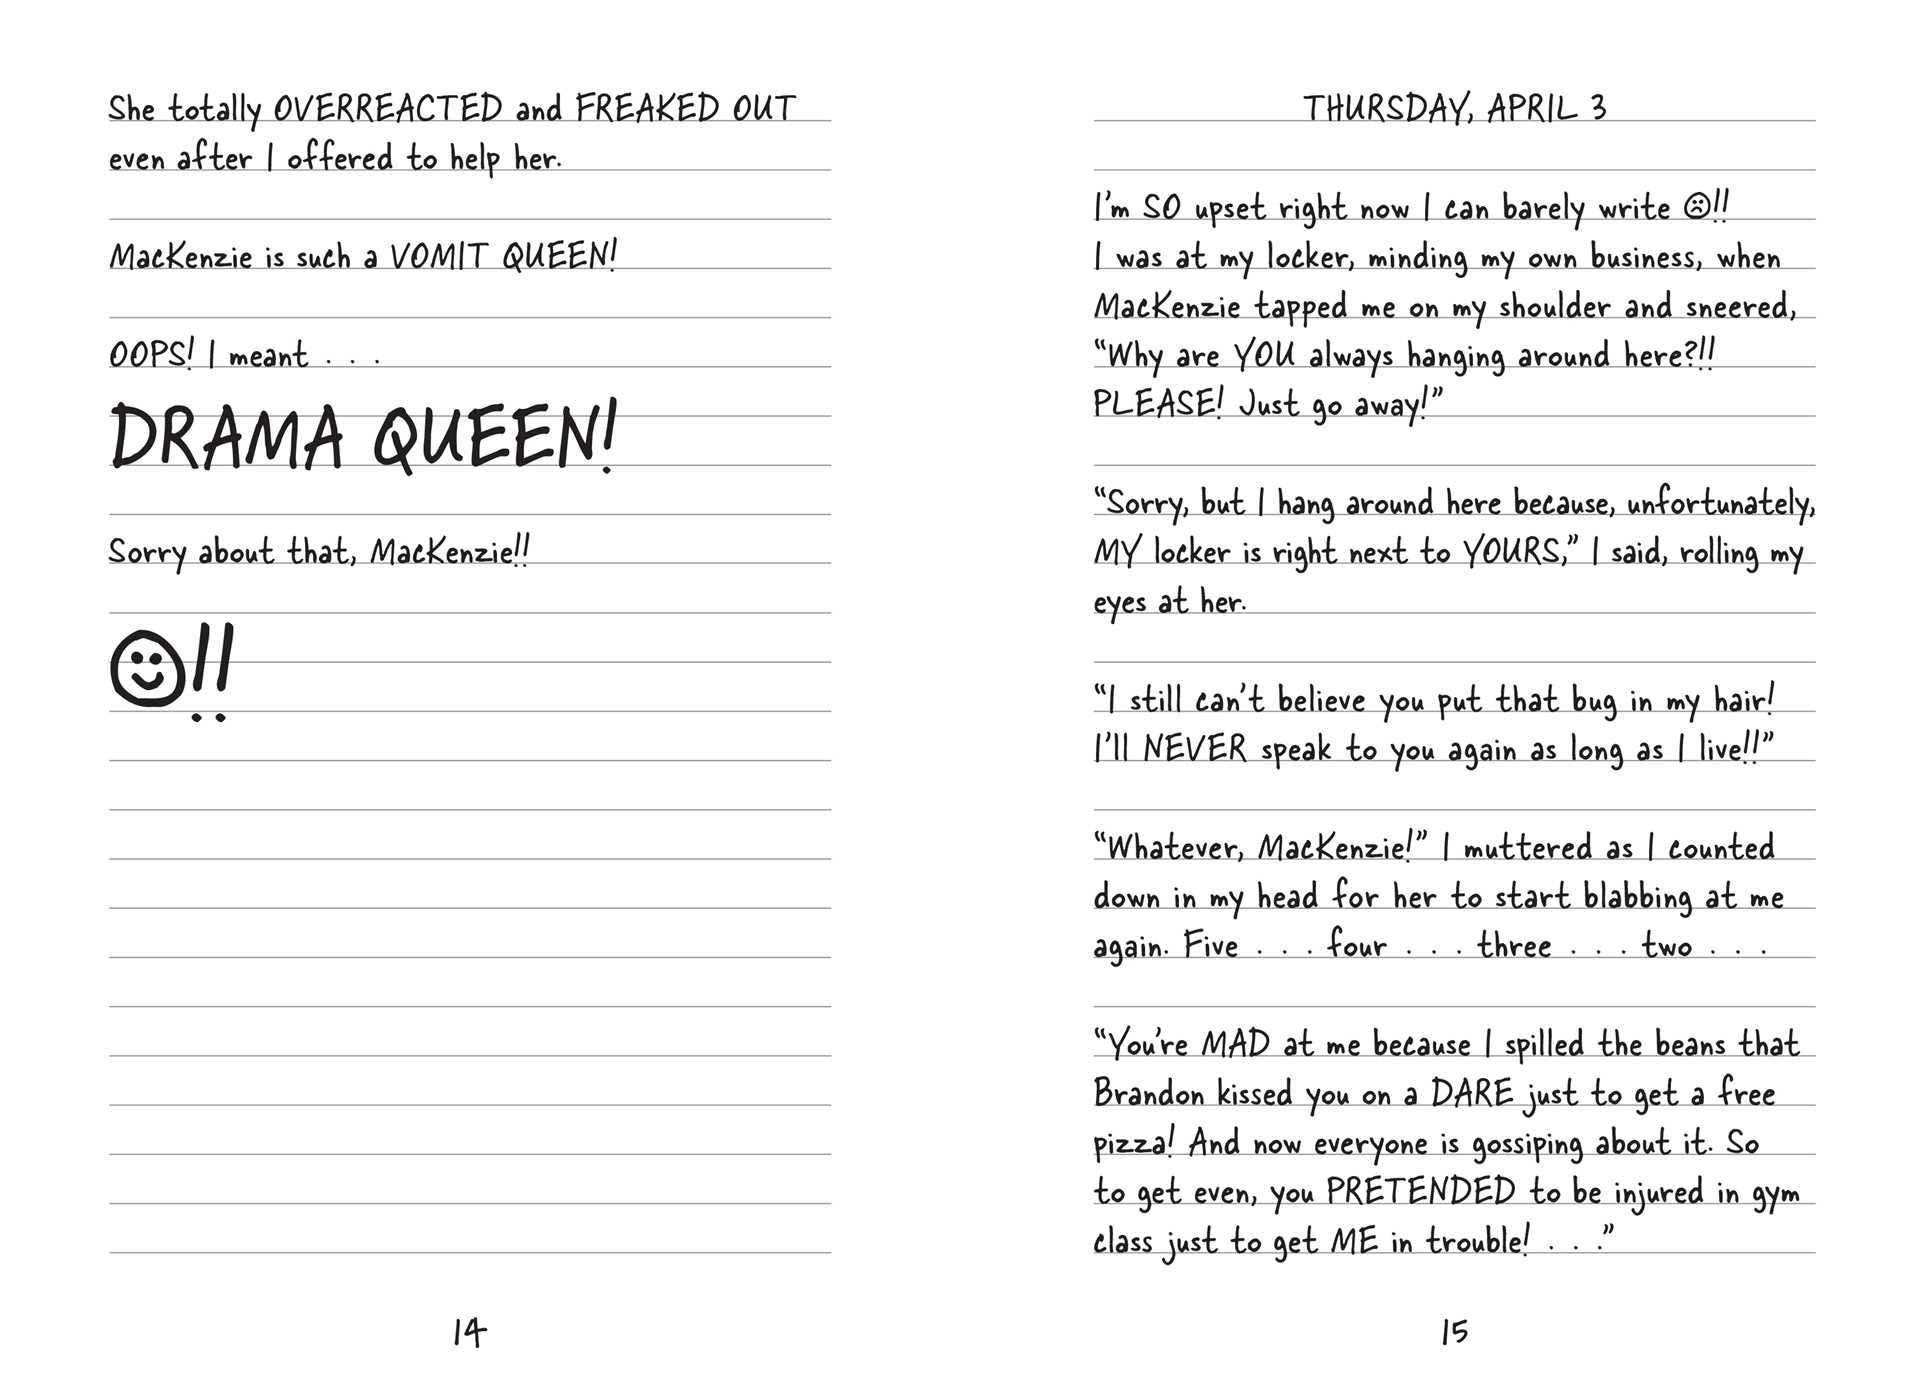 She totally OVERREACTED and FREAKED OUT
even after I offered to help her.
MacKenzie is such a VOMIT QUEEN!
OOPS! I meant . . .
DRAMA QUEEN!
Sorry about that, MacKenzie!!
☺!!
14
THURSDAY, APRIL 3
I'm SO upset right now I can barely write ☹!!
I was at my locker, minding my own business, when
MacKenzie tapped me on my shoulder and sneered,
“Why are YOU always hanging around here?!!
PLEASE! Just go away!”
“Sorry, but I hang around here because, unfortunately,
MY locker is right next to YOURS,” I said, rolling my
eyes at her.
“I still can't believe you put that bug in my hair!
I'll NEVER speak to you again as long as I live!!”
“Whatever, MacKenzie!” I muttered as I counted
down in my head for her to start blabbing at me
again. Five . . . four . . . three . . . two . . .
“You're MAD at me because I spilled the beans that
Brandon kissed you on a DARE just to get a free
pizza! And now everyone is gossiping about it. So
to get even, you PRETENDED to be injured in gym
class just to get ME in trouble! . . .”
15